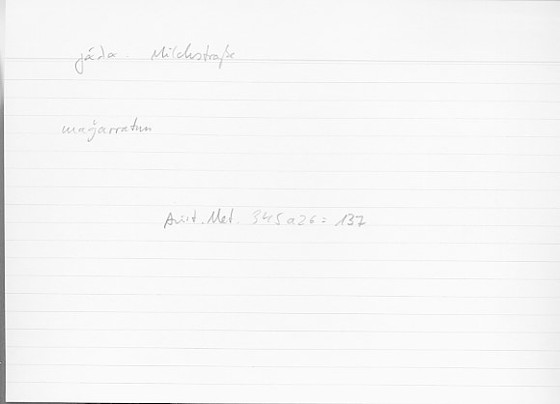 γάλα. Milchstraße
maǧarratun
Arist. Met. 345a26 = 137